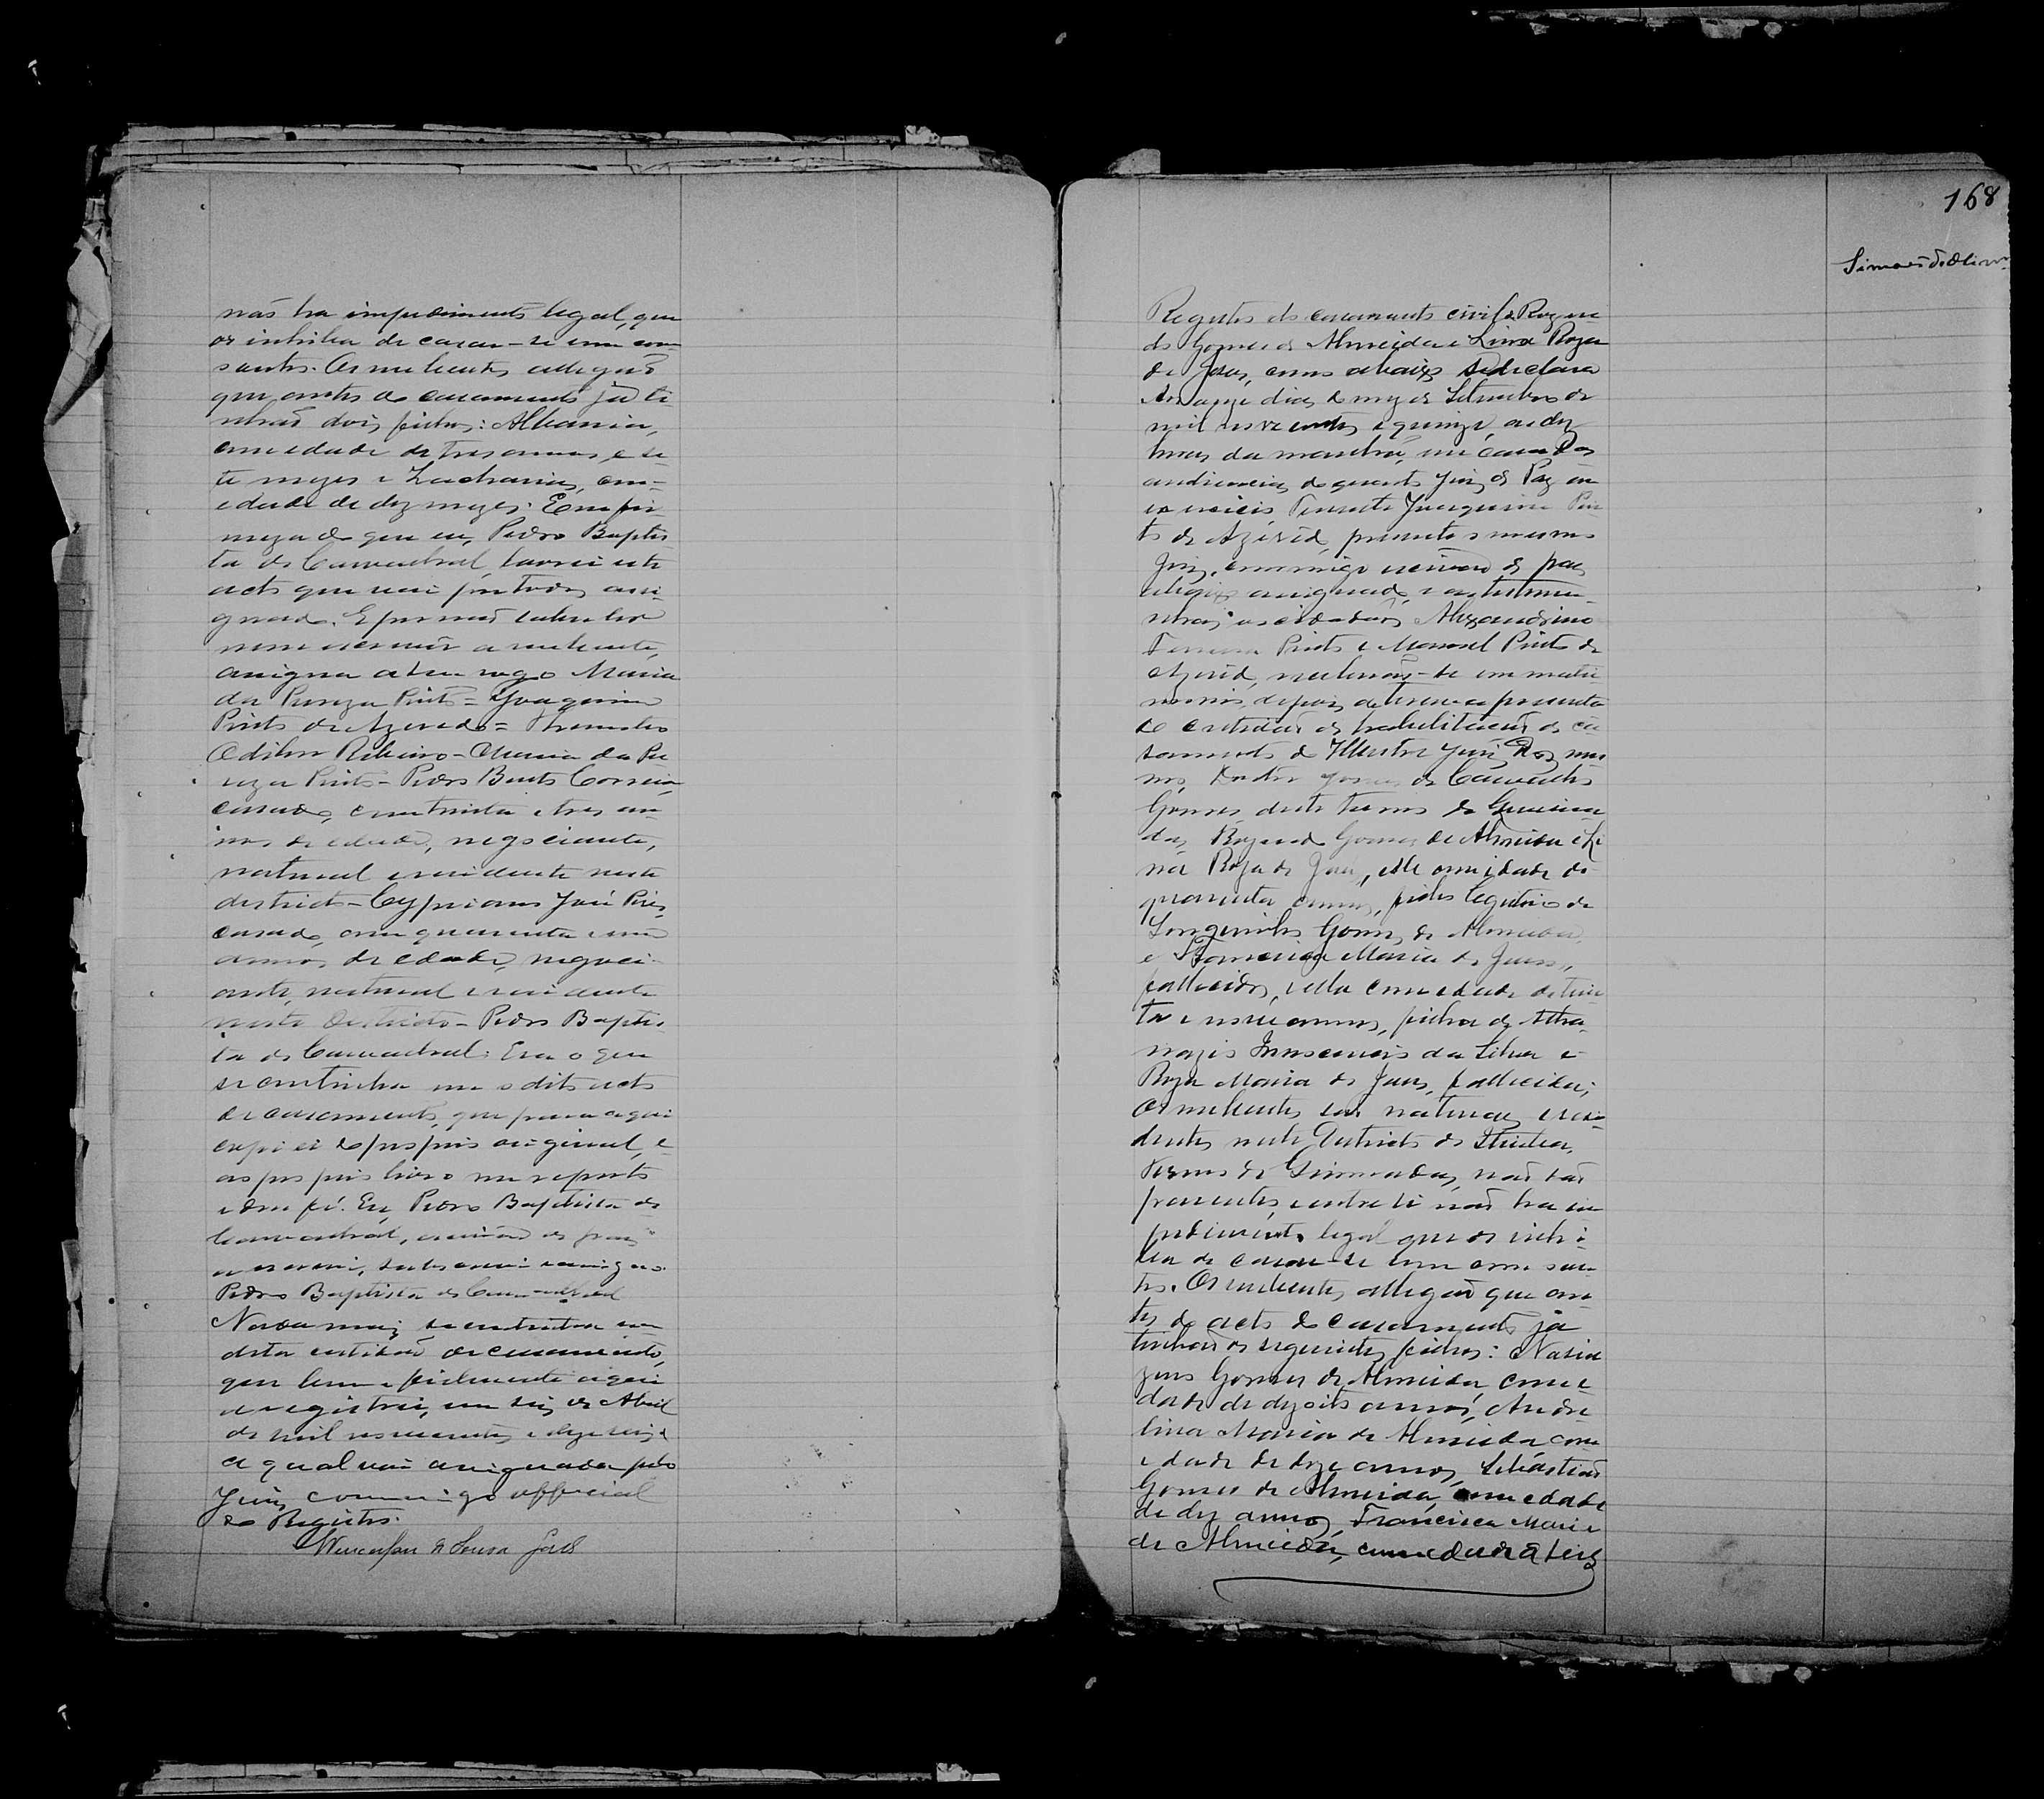 não ha impedimento legal, que
os inhiba de casar-se um com
santes. Os nubentes allegão
que antes do casamento já ti-
nhão dois filhos: Albania,
com edade de tres annos e se-
te mezes e Zacharias, com
edade de dez mezes. Em fir-
meza do que eu, Pedro Baptis
ta de Carvalhal, lavrei este
acto que vai por todos assi-
gnado. E por não saber ler
nem escrever a nubente,
assigna a seu rogo Maria
da Pureza Pinto = Joaquim
Pinto de Azevedo =
Odilon Ribeiro - Maria da Pu
reza Pinto - Pedro Bento Correia,
casado, com trinta e tres an-
nos de edade, negociante,
natural e residente neste
districto - Cypriano José Pires,
casado, com quarenta e um
annos de edade, negoci-
ante, natural e residente
neste districto - Pedro Baptis
ta de Carvalhal. Era o que
se continha em o dito acto
de casamento, que para aqui
copiei do proprio original, e
ao proprio livro me reporto
e dou fé. Eu, Pedro Baptista de
Carvalhal, escrivão de paz
o escrevi, subscrevi e assigno.
Pedro Baptista de Carvalhal
Nada mais se continha em
dita certidão de casamento,
que bem e fielmente aqui
a registrei, em seis de Abril
de mil novecentos e dezeseis,
a qual vai assignada pelo
Juiz, commigo official
do Registro.
de Sousa
168
Simões d'Oliv
Registro do casamento civil de
do Gomes de Almeida e Lina Roza
de Jesus, como abaixo se declara
Aos dias do mez de Setembro de
mil novecentos e quinze, as dez
horas da manhã, em casa das
audiencias do quarto Juiz de Paz em
exercicio Tenente Joaquim Pin
to de Azevêdo, presente o mesmo
Juiz, commigo escrivão de paz
abaixo assignado, e as testemu-
nhas os cidadãos Alexandrino
Ferreira Pinto e Manoel Pinto de
Azevêdo, receberão-se em matri
monio, depois de terem apresenta
do certidão de habilitação de ca
samento do Illustre Juiz
Doutor de
Gomes, deste termo de
das, Gomes de Almeida e Li
na Roza de Jesus, elle com idade de
quarenta annos, filho legitimo de
Longuinho Gomes de Almeida
e Maria de Jesus,
fallecidos, e ella com edade de trin
ta e nove annos, filha de Atha
nazio Innocencio da Silva e
Roza Maria de Jesus, fallecida;
os nubentes são naturaes e resi
dentes neste Districto de
termo de não são
parentes, e entre si não ha im
pedimento legal que os inhi-
ba de casar-se um com san
tes. Os nubentes allegão que an
tes do acto do casamento já
tinhão os seguintes filhos:
Gomes de Almeida, com e
dade de dezoito annos,
lina Maria de Almeida, com
edade de doze annos, Sebastião
Gomes de Almeida, com edade
de dez annos, Francisca Maria
de Almeida, com edade de seis